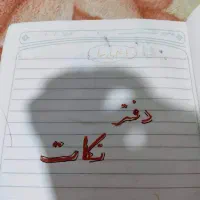 دفتر
نكات